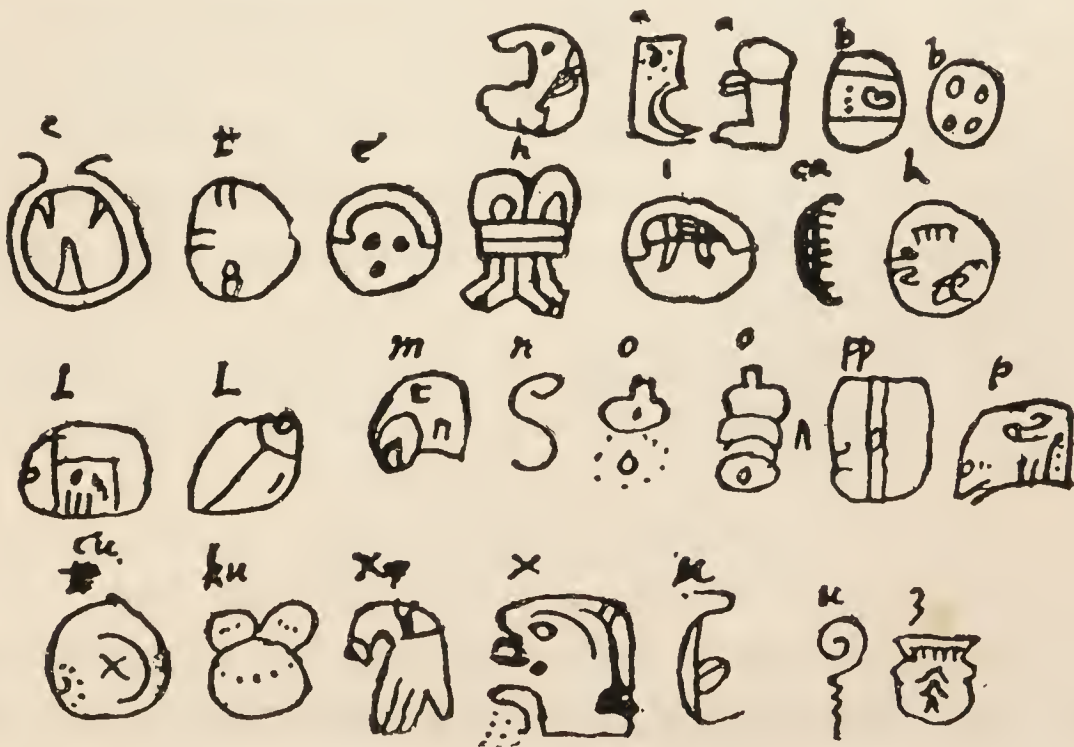 a a b b
c t e h i ca k
L L m n o o pp p
cu ku x x u u z